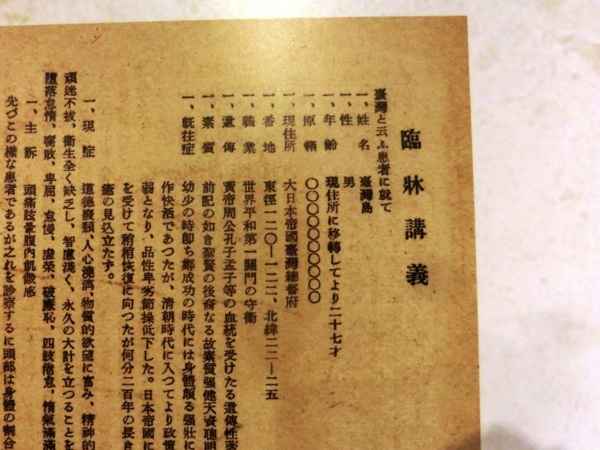 臨牀講義
臺灣と云ふ患者に就て
一、姓名 臺灣島
一、性 男
一、年齡 現住所に移轉してより二十七才
一、原籍 〇〇〇〇〇〇〇〇〇
一、現住所 大日本帝國臺灣總督府
一、番地 東徑一二〇―一二二、北緯二二―二五
一、職業 世界平和第一關門の守衛
一、遺傳 黄帝周公孔子孟子等の血統を受けたる遺傳性
一、素質 前記の如き聖賢の後裔なる故素質强健天資聰明
一、既往症 幼少の時卽ち鄭成功の時代には身體頗る强壯に
作快活であつたが、清朝時代に入つてより政策
弱となり、品性卑劣節操低下した。日本帝國に
を受けて稍稍恢復に向つたが何分二百年の長き
癒の見込立たず。
一、現症 道德廢頽、人心澆漓、物質的欲望に富み、精神的
頑迷不拔、衞生全く缺乏し、智慮淺く、永久の大計を立つることを
墮落怠惰、腐敗、卑屈、怠慢、虛榮、破廉恥、四肢倦怠、惰氣滿滿
一、主訴 頭痛眩暈腹內飢餓感
先づこの樣な患者であるが之れを診察するに頭部は身體の割合